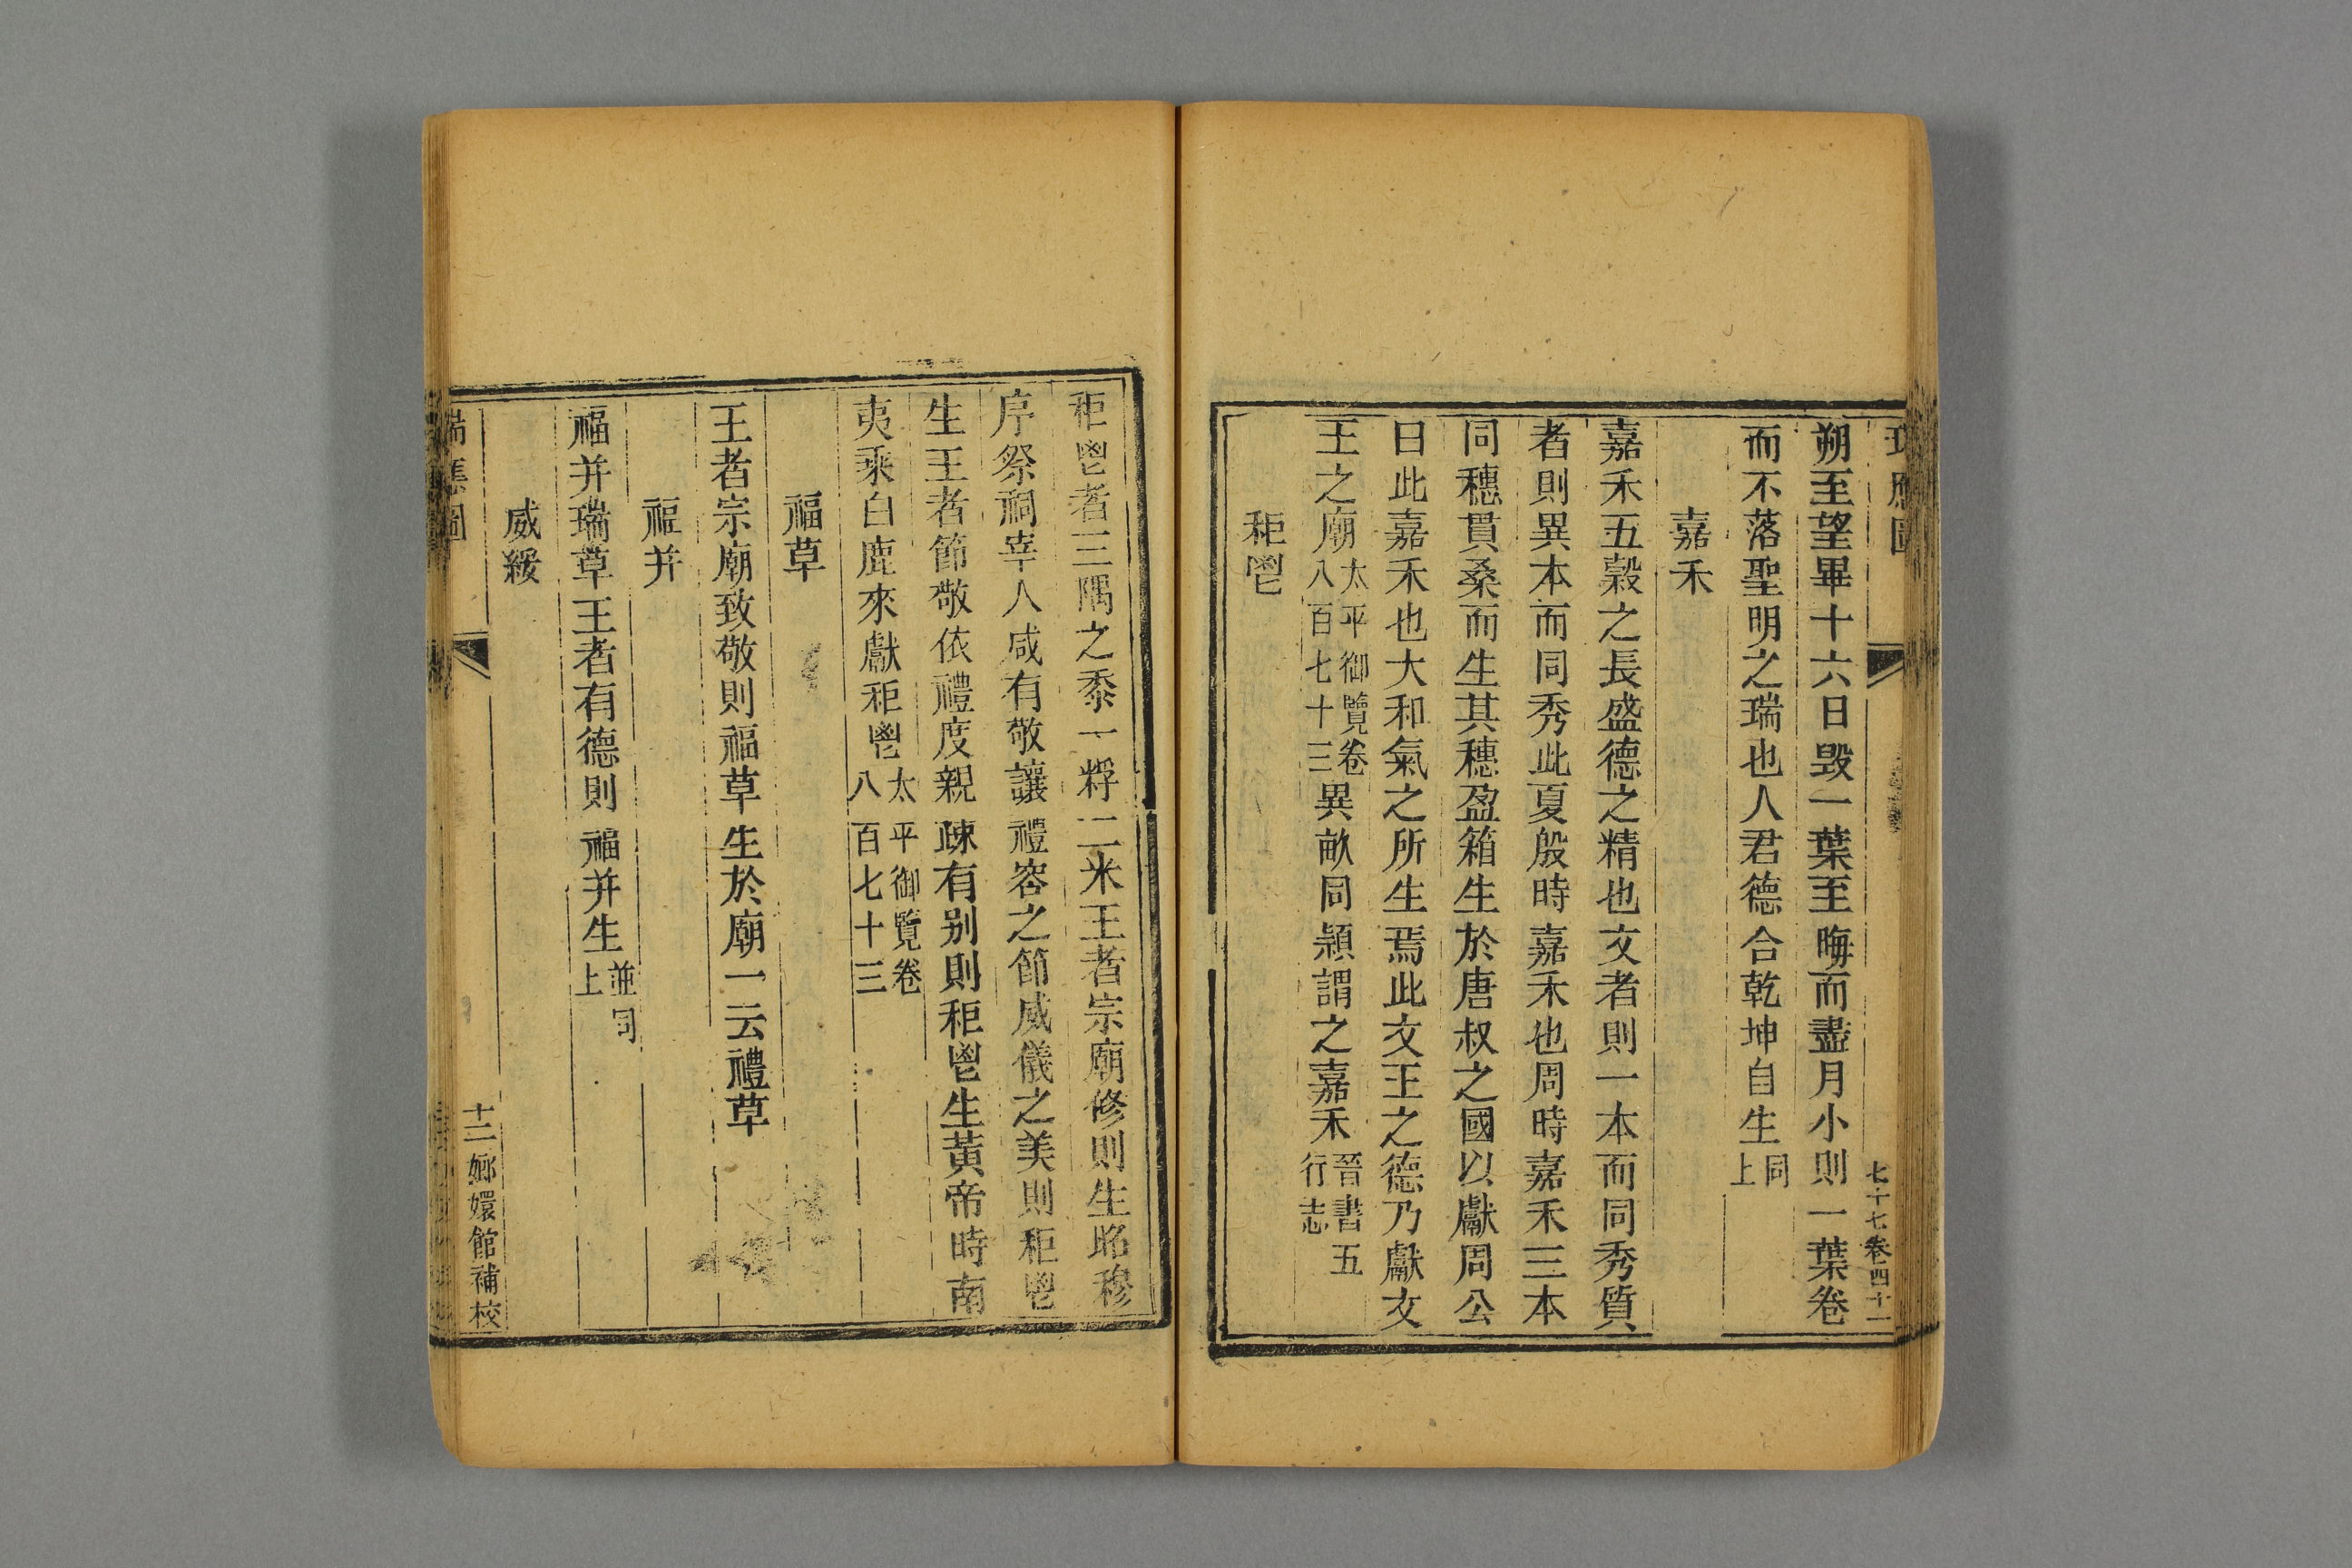 七十七卷四十一
朔至望畢十六日毁一葉至晦而盡月小則一葉卷
而不落聖明之瑞也人君德合乾坤自生同上
嘉禾
嘉禾五穀之長盛德之精也文者則一本而同秀質
者則異本而同秀此夏殷時嘉禾也周時嘉禾三本
同穗貫桑而生其穗盈箱生於唐叔之國以獻周公
曰此嘉禾也大和氣之所生焉此文王之德乃獻文
王之廟太平御覽卷八百七十三異畝同穎謂之嘉禾晉書五行志
秬鬯
秬鬯者三隅之黍一稃二米王者宗廟修則生昭穆
序祭祠宰人咸有敬讓禮容之節威儀之美則秬鬯
生王者節敬依禮度親疎有别則秬鬯生黃帝時南
夷乘白鹿來獻秬鬯太平御覽卷八百七十三
福草
王者宗廟致敬則福草生於廟一云禮草
福并
福并瑞草王者有德則福并生並同上
威綏
十二
嫏嬛館補校